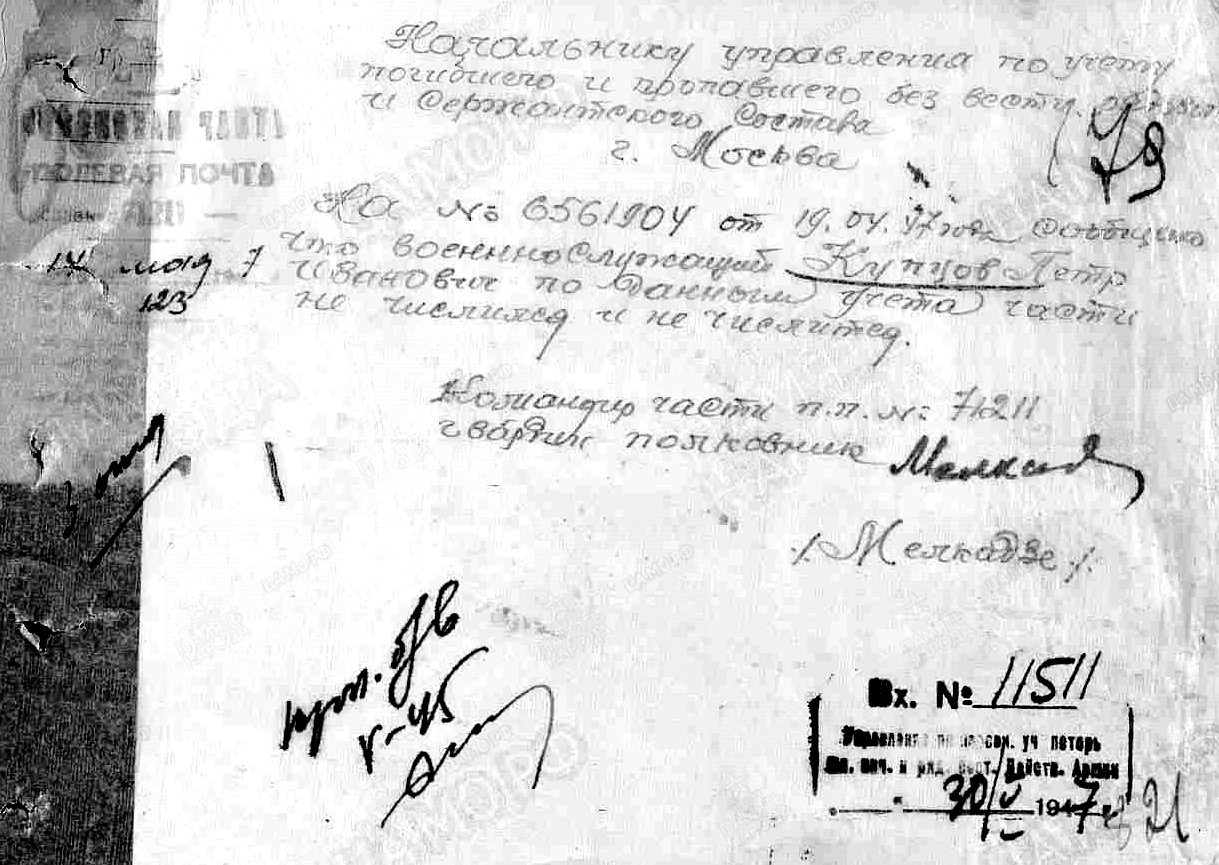 Начальнику управления по учету
погибшего и пропавшего без вести
и Сержантского Состава
г. Москва
79
ПОЛЕВАЯ ПОЧТА
14 мая 7
123
На № 6561904 от 19.04.47 года Сообщаю
что военнослужащий Купцов Петр
Иванович по данным учета части
не числился и не числится.
Командир части п.п. №: 71211
гвардии полковник
/. Мелкадзе /.
проп. б/в
V-45
Вх. № 11511
Управление по персон. уч потерь
Действ. Армии
30/V 1947 г.
21